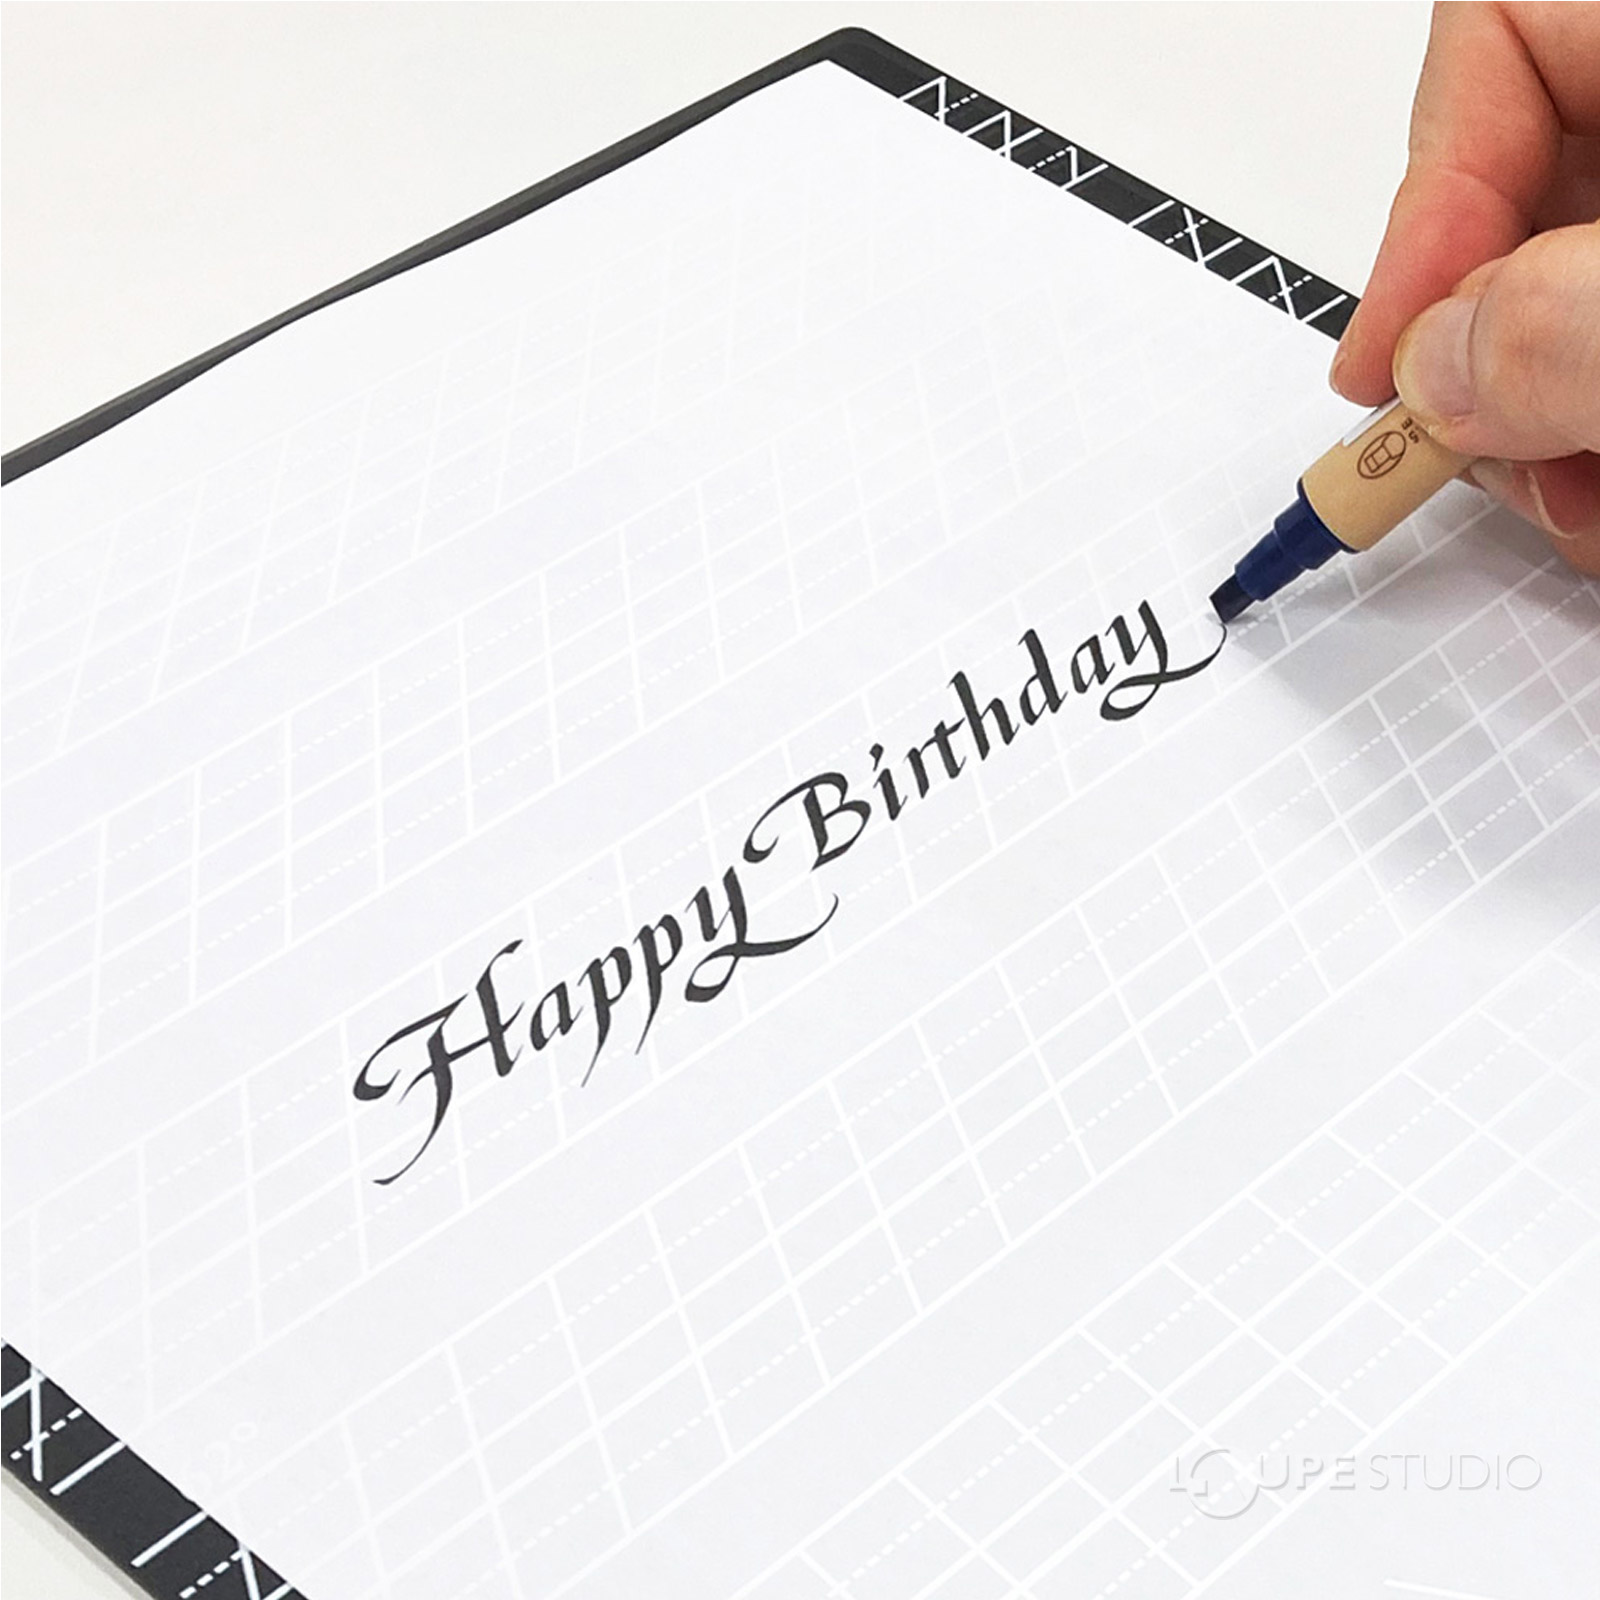 Happy Birthday
5.0
LOUPE STUDIO